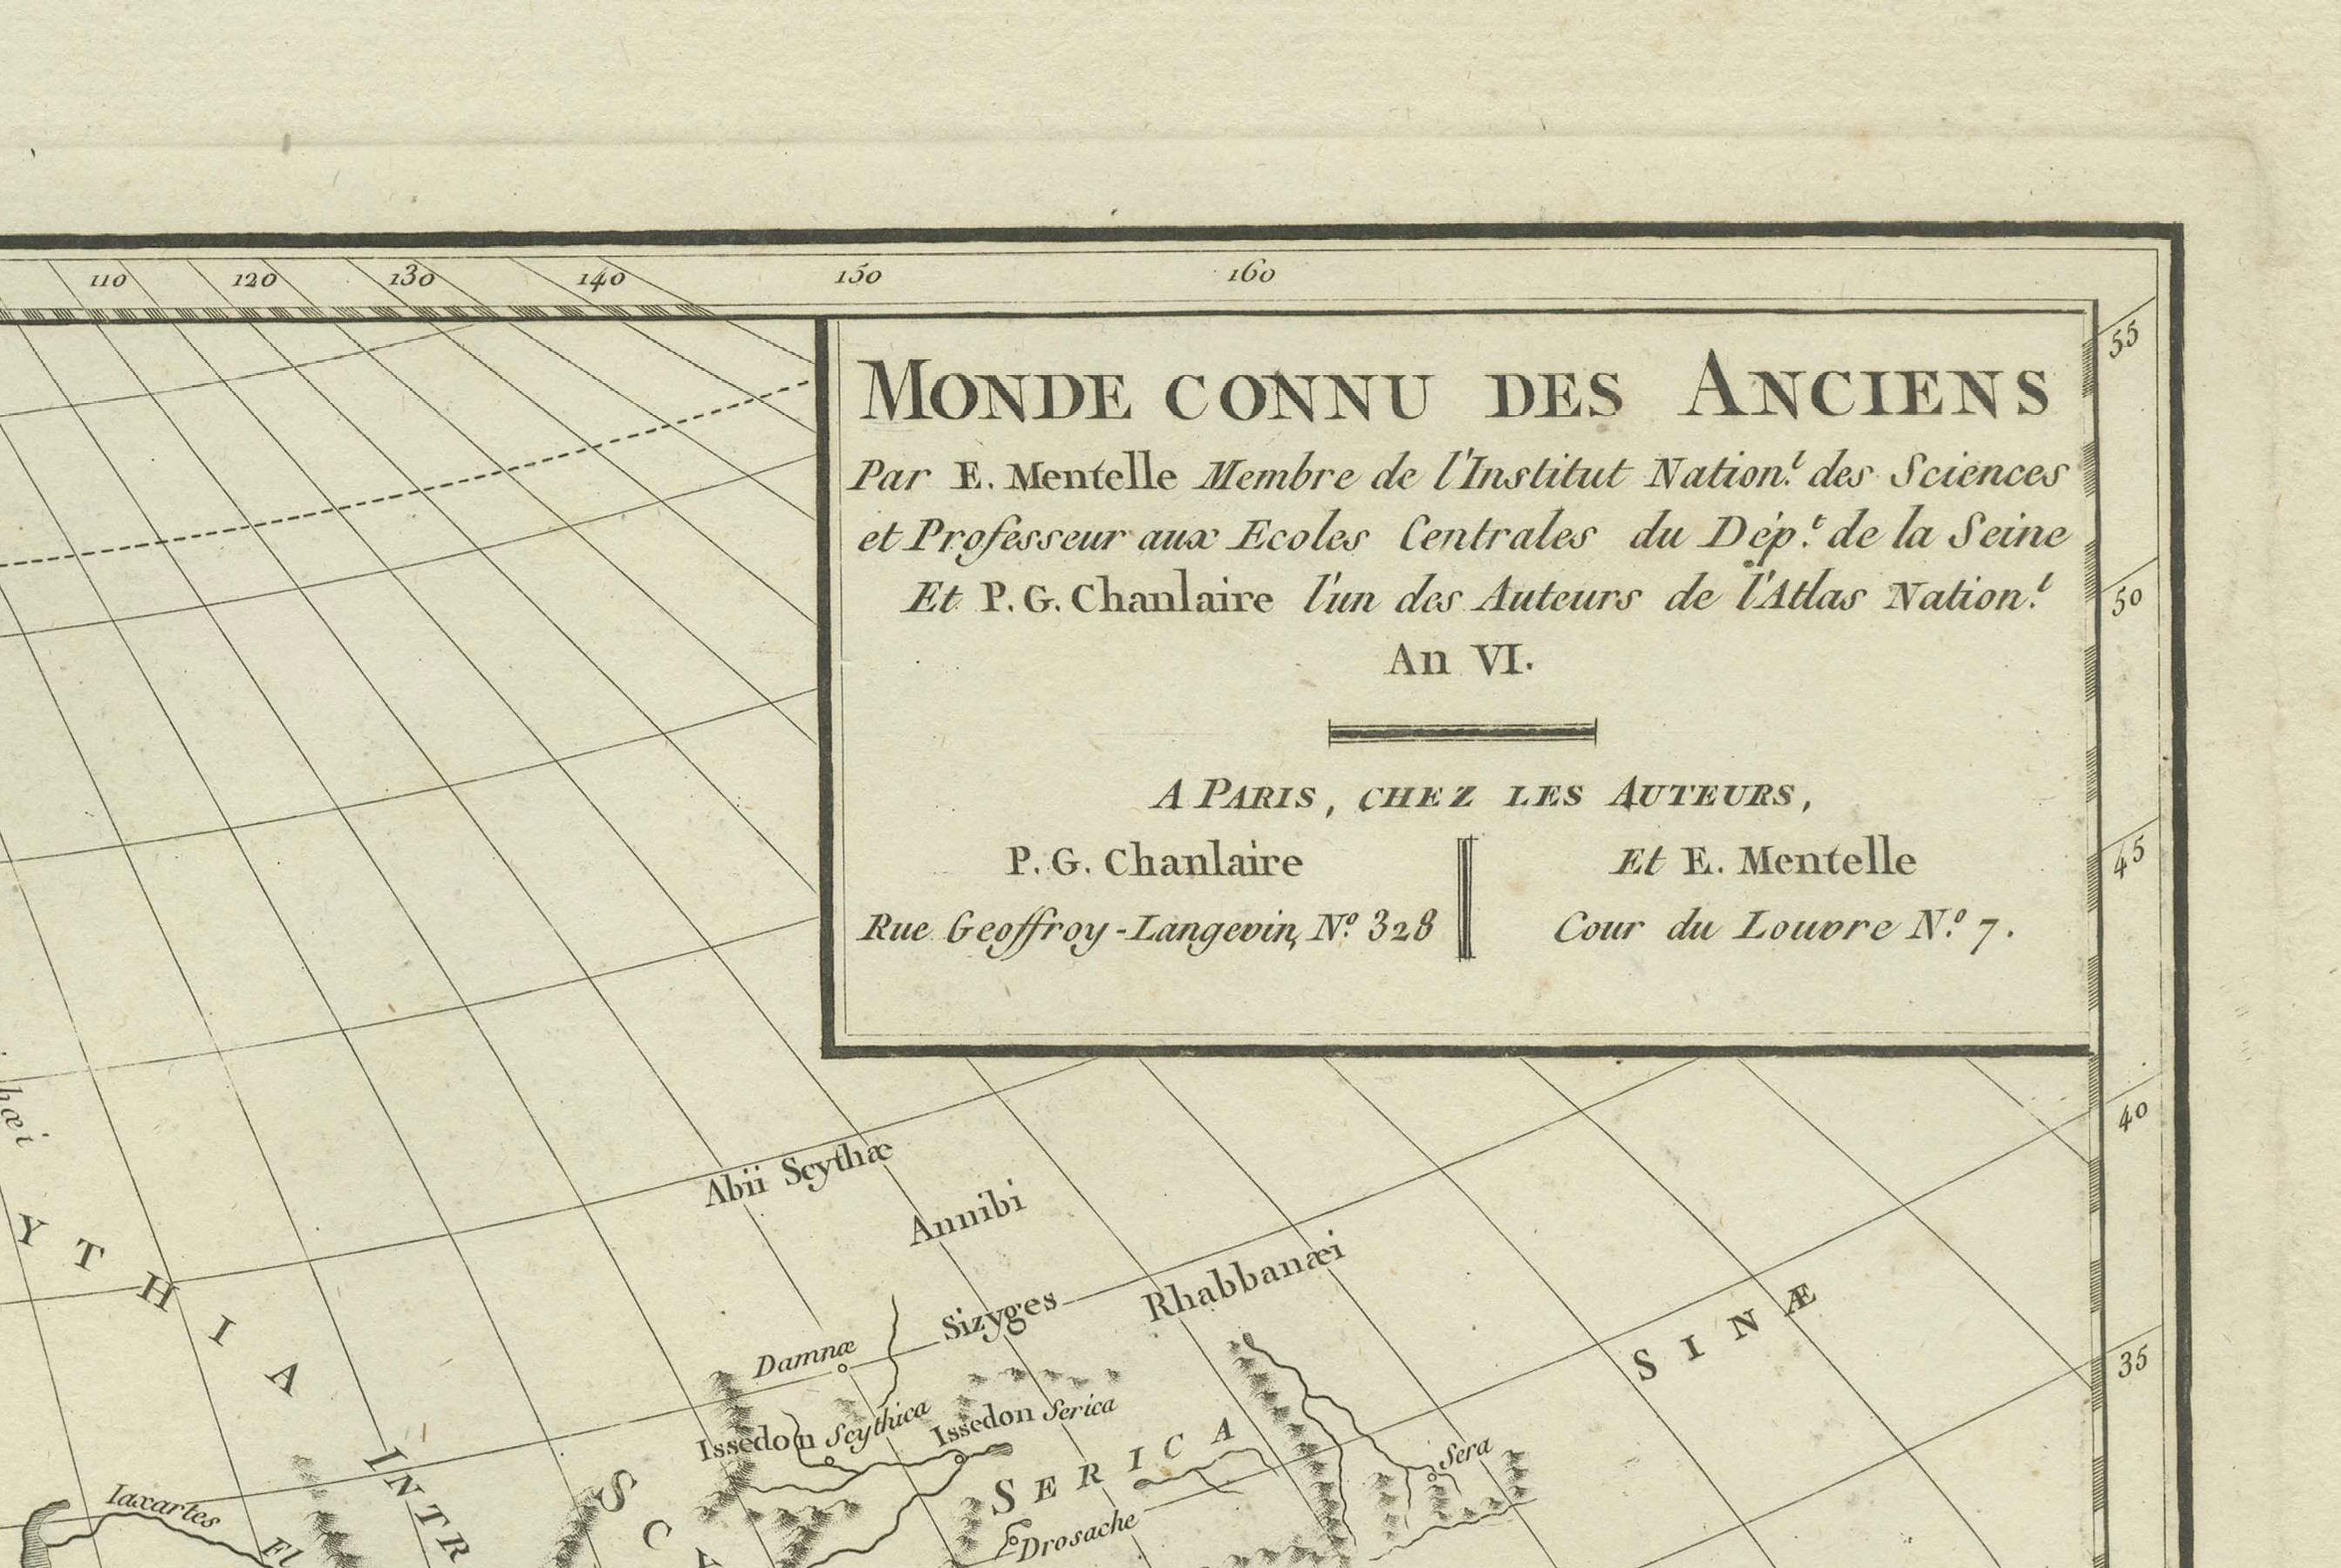 110 120 130 140 150 160
MONDE CONNU DES ANCIENS
Par E. Mentelle Membre de l'Institut Nation.l des Sciences
et Professeur aux Ecoles Centrales du Dép.t de la Seine
Et P. G. Chanlaire l'un des Auteurs de l'Atlas Nation.l
An VI.
A PARIS, CHEZ LES AUTEURS,
P. G. Chanlaire
Rue Geoffroy-Langevin, N.º 328
Et E. Mentelle
Cour du Louvre N.º 7.
55
50
45
40
35
Abii Scythæ
Annibi
Rhabbanæi
Sizyges
Damnæ
SINÆ
YTHIA
INTR
Issedon Scythica
Issedon Serica
SERICA
Sera
Drosache
Iaxartes
Fl
SCA
hæi